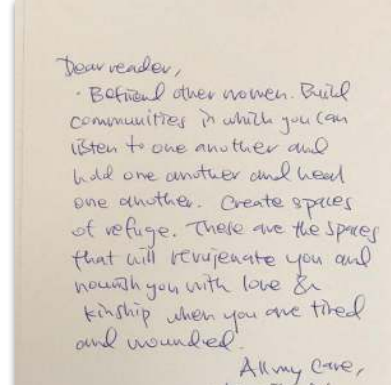 Dear reader,
· Befriend other women. Build
communities in which you can
listen to one another and
hold one another and heal
one another. Create spaces
of refuge. These are the spaces
that will revujenate you and
nourish you with love &
kinship when you are tired
and wounded.
All my care,